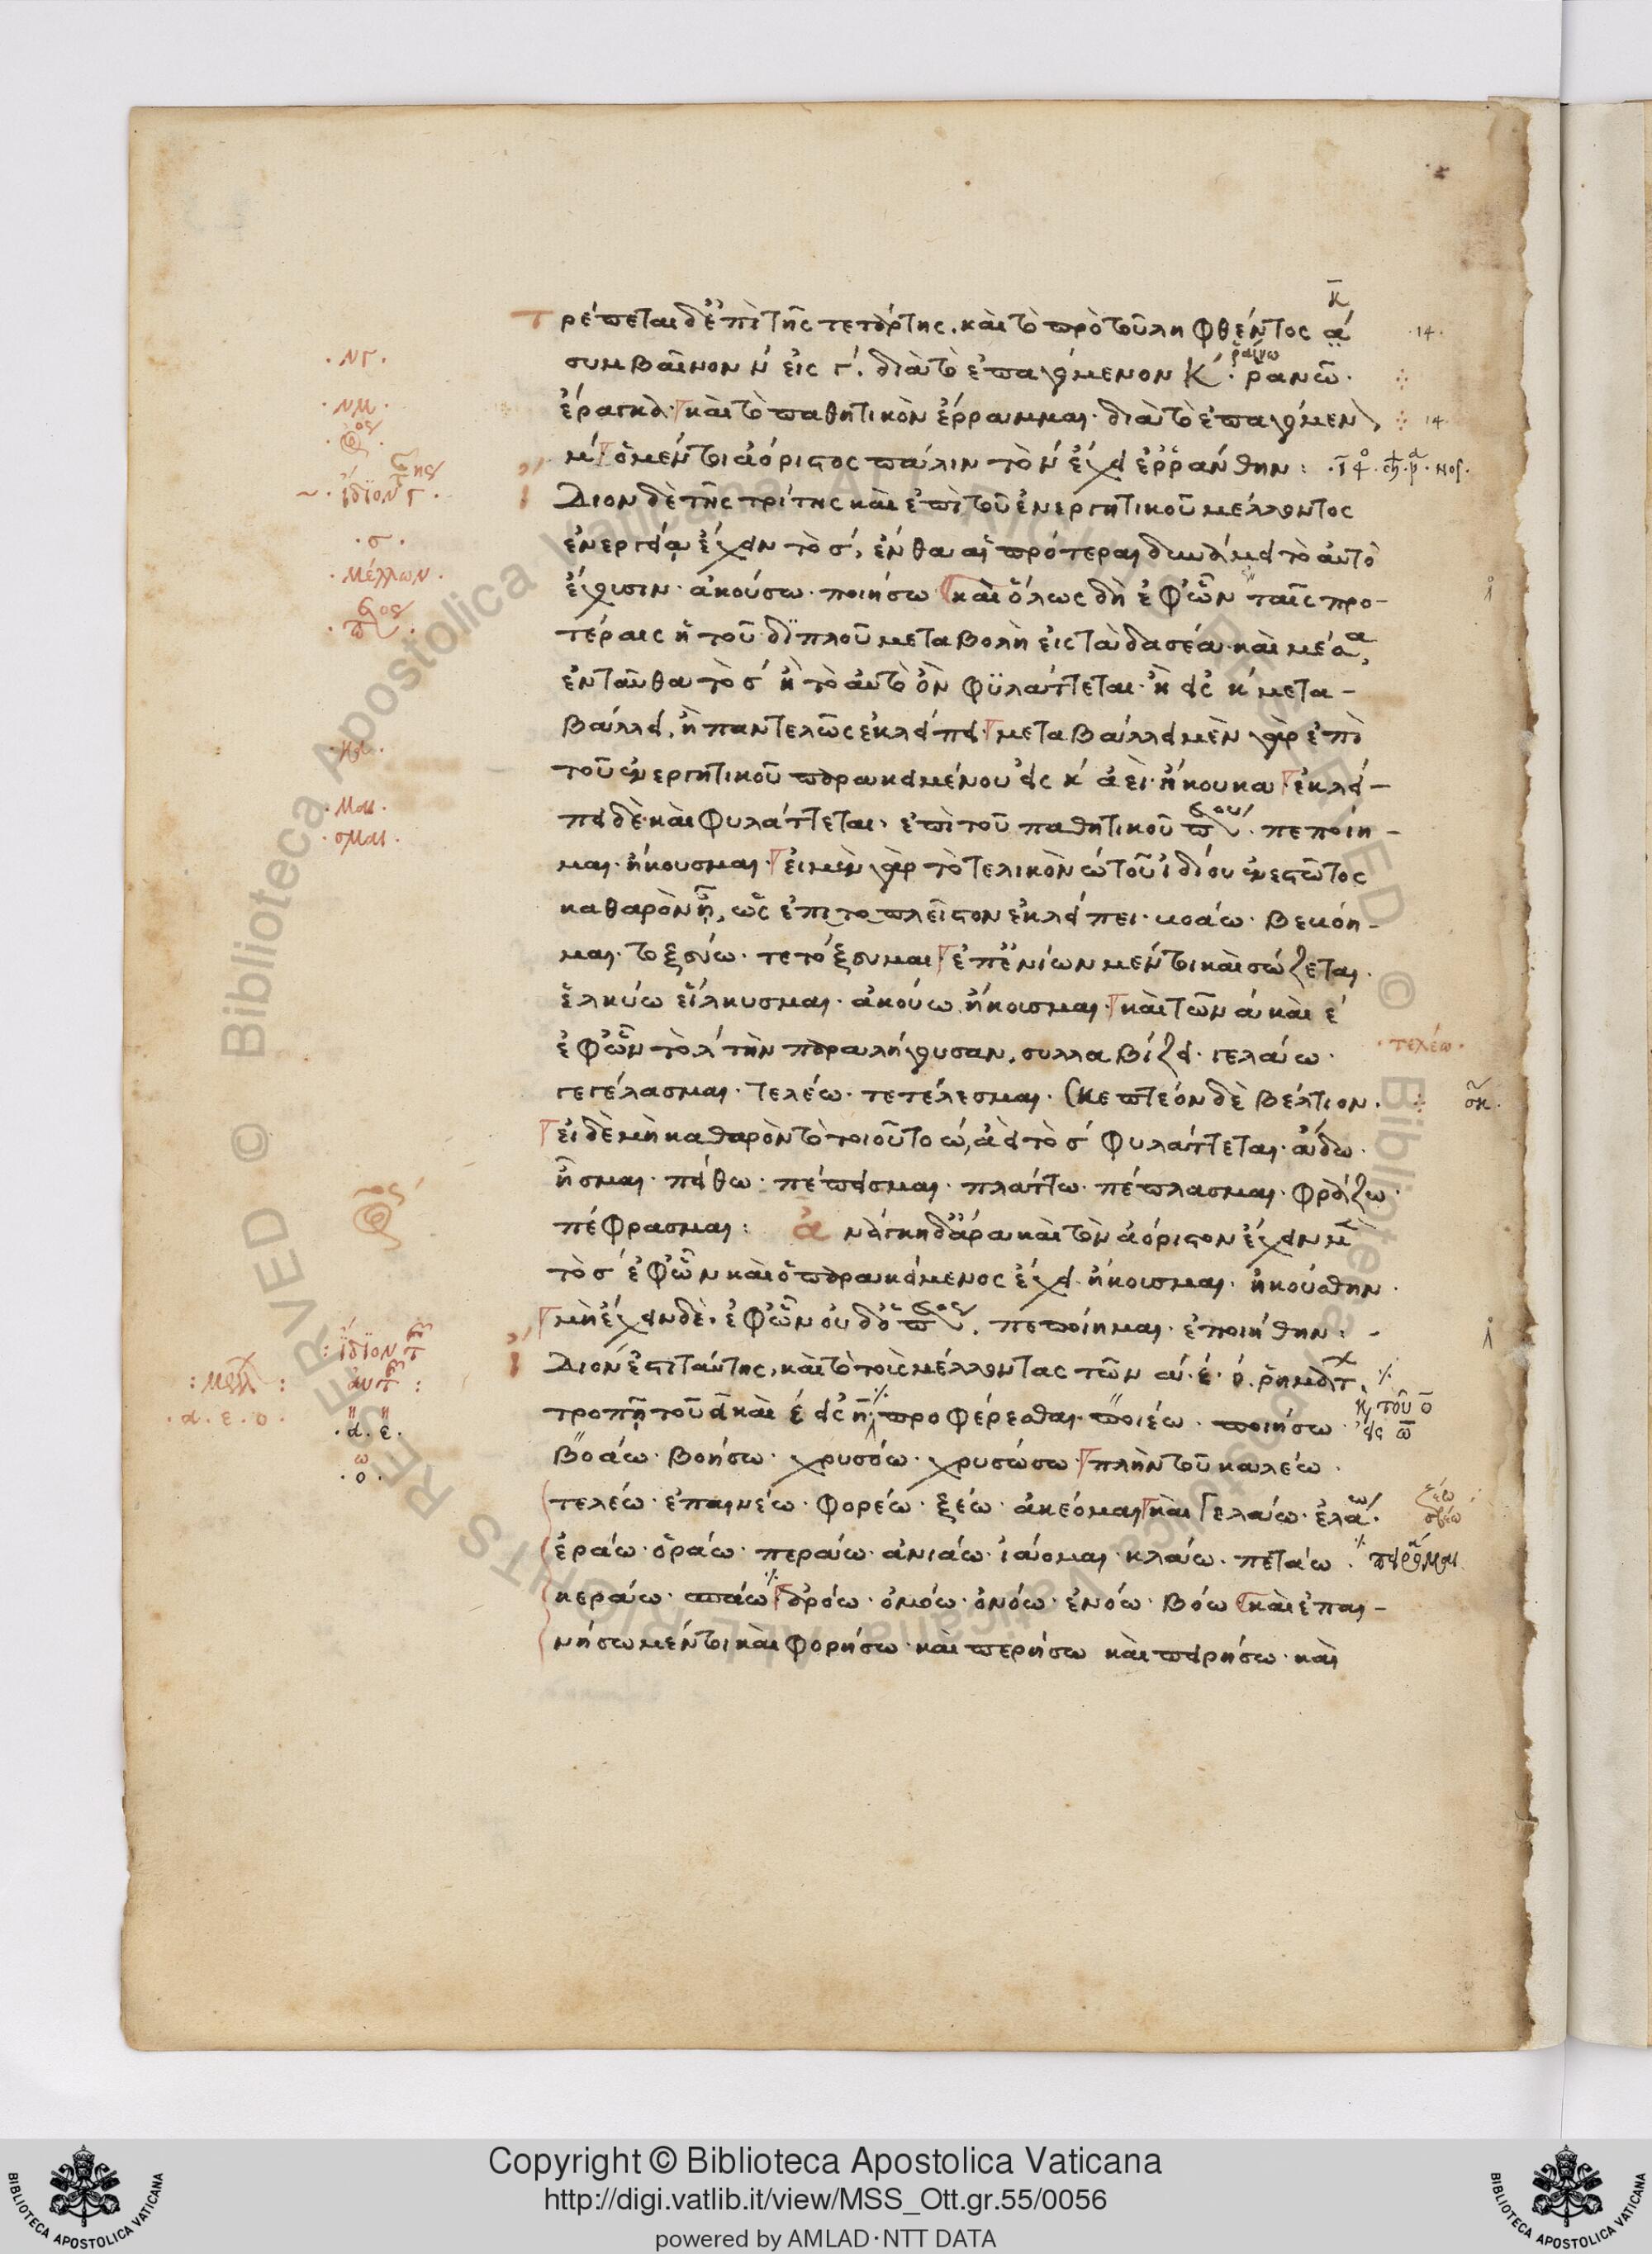 Τρέπεται δ' ἐπὶ τῆς τετάρτης. καὶ τὸ πρὸ τοῦ ληφθέντος ά
συμβαῖνον ν εἰς γ. διὰ τὸ ἐπαγόμενον κ. ῥανῶ.
ἔραγκα. καὶ τὸ παθητικὸν ἔρραμμαι. διὰ τὸ ἐπαγόμεν
μ. ὁ μέντοι ἀόριστος πάλιν τὸ ν ἔχει ἐρράνθην:
ἴδιον δὲ τῆς τρίτης καὶ ἐπὶ τοῦ ἐνεργητικοῦ μέλλοντος
ἐνεργείᾳ ἔχειν τὸ σ, ἔνθα αἱ πρότεραι δυνάμει τὸ αὐτὸ
ἔχουσιν. ἀκούσω. ποιήσω καὶ ὅλως δὴ ἐφ' ὧν ταῖς προ-
τέραις ἡ τοῦ διπλοῦ μεταβολὴ εἰς τὰ δασέα καὶ μέσα,
ἐνταῦθα τὸ σ ἢ τὸ αὐτὸ ὂν φυλάττεται. ἢ εἰς κ μετα-
βάλλει, ἢ παντελῶς ἐκλείπει. μεταβάλλει μὲν γὰρ ἐπὶ
τοῦ ἐνεργητικοῦ παρακειμένου εἰς κ ἀεὶ. ἤκουκα ἐκλεί-
πει δὲ καὶ φυλάττεται. ἐπὶ τοῦ παθητικοῦ π. πεποίη-
μαι. ἤκουσμαι. εἰ μὲν γὰρ τὸ τελικὸν ώ τοῦ ἰδίου ἐνεστῶτος
καθαρὸν ᾖ, ὡς ἐπὶ τὸ πλεῖστον ἐκλείπει. βοάω. βεβόη-
μαι. τοξεύω. τετόξευμαι ἐπ' ἐνίων μέντοι καὶ σώζεται.
ἑλκύω εἵλκυσμαι. ἀκούω ἤκουσμαι. καὶ τῶν ά καὶ έ
ἐφ' ὧν τὸ λ τὴν παραλήγουσαν, συλλαβίζει. γελάω.
γεγέλασμαι. τελέω. τετέλεσμαι. σκεπτέον δὲ βέλτιον.
εἰ δὲ μὴ καθαρὸν τὸ τοιοῦτο ώ, ἀεὶ τὸ σ φυλάττεται. ἄδω.
ᾖσμαι. πείθω. πέπεισμαι. πλάττω. πέπλασμαι. φράζω.
πέφρασμαι: ἀνάγκη δ' ἄρα καὶ τὸν ἀόριστον ἔχειν μὲν
τὸ σ ἐφ' ὧν καὶ ὁ παρακείμενος ἔχει. ἤκουσμαι. ἠκούσθην.
μὴ ἔχειν δὲ. ἐφ' ὧν οὐδ' ὁ π. πεποίημαι. ἐποιήθην:
ἴδιόν ἐστι ταύτης. καὶ τὸ τοὺς μέλλοντας τῶν ά. έ. ό. ῥημάτ.
τροπῇ τοῦ α καὶ ε εἰς η, προφέρεσθαι. ποιέω. ποιήσω.
βοάω. βοήσω. χρυσόω. χρυσώσω πλὴν τοῦ καλέω.
τελέω. ἐπαινέω. φορέω. ξέω. ἀκέομαι καὶ γελάω. ἐλά.
ἐράω. ὁράω. περάω. ἀνιάω. ἰάομαι. κλάω. πετάω.
κεράω. σπάω ἀρόω. ὀμόω. ὀνόω. ἐνόω. βόω καὶ ἐπαι-
νήσω μέντοι καὶ φορήσω. καὶ περήσω καὶ πειρήσω. καὶ
. ΝΓ .
. ΝΜ .
ἴδιον Γ.
. σ .
. μέλλων .
. μαι .
. σμαι .
. τελέω .
: ἴδιον
. α . ε . ο .
. α . ε .
. ο .
ῥαίνω
κ τοῦ ο
εἰς ω
ζέω
Copyright © Biblioteca Apostolica Vaticana
http://digi.vatlib.it/view/MSS_Ott.gr.55/0056
powered by AMLAD·NTT DATA
BIBLIOTECA APOSTOLICA VATICANA
BIBLIOTECA APOSTOLICA VATICANA